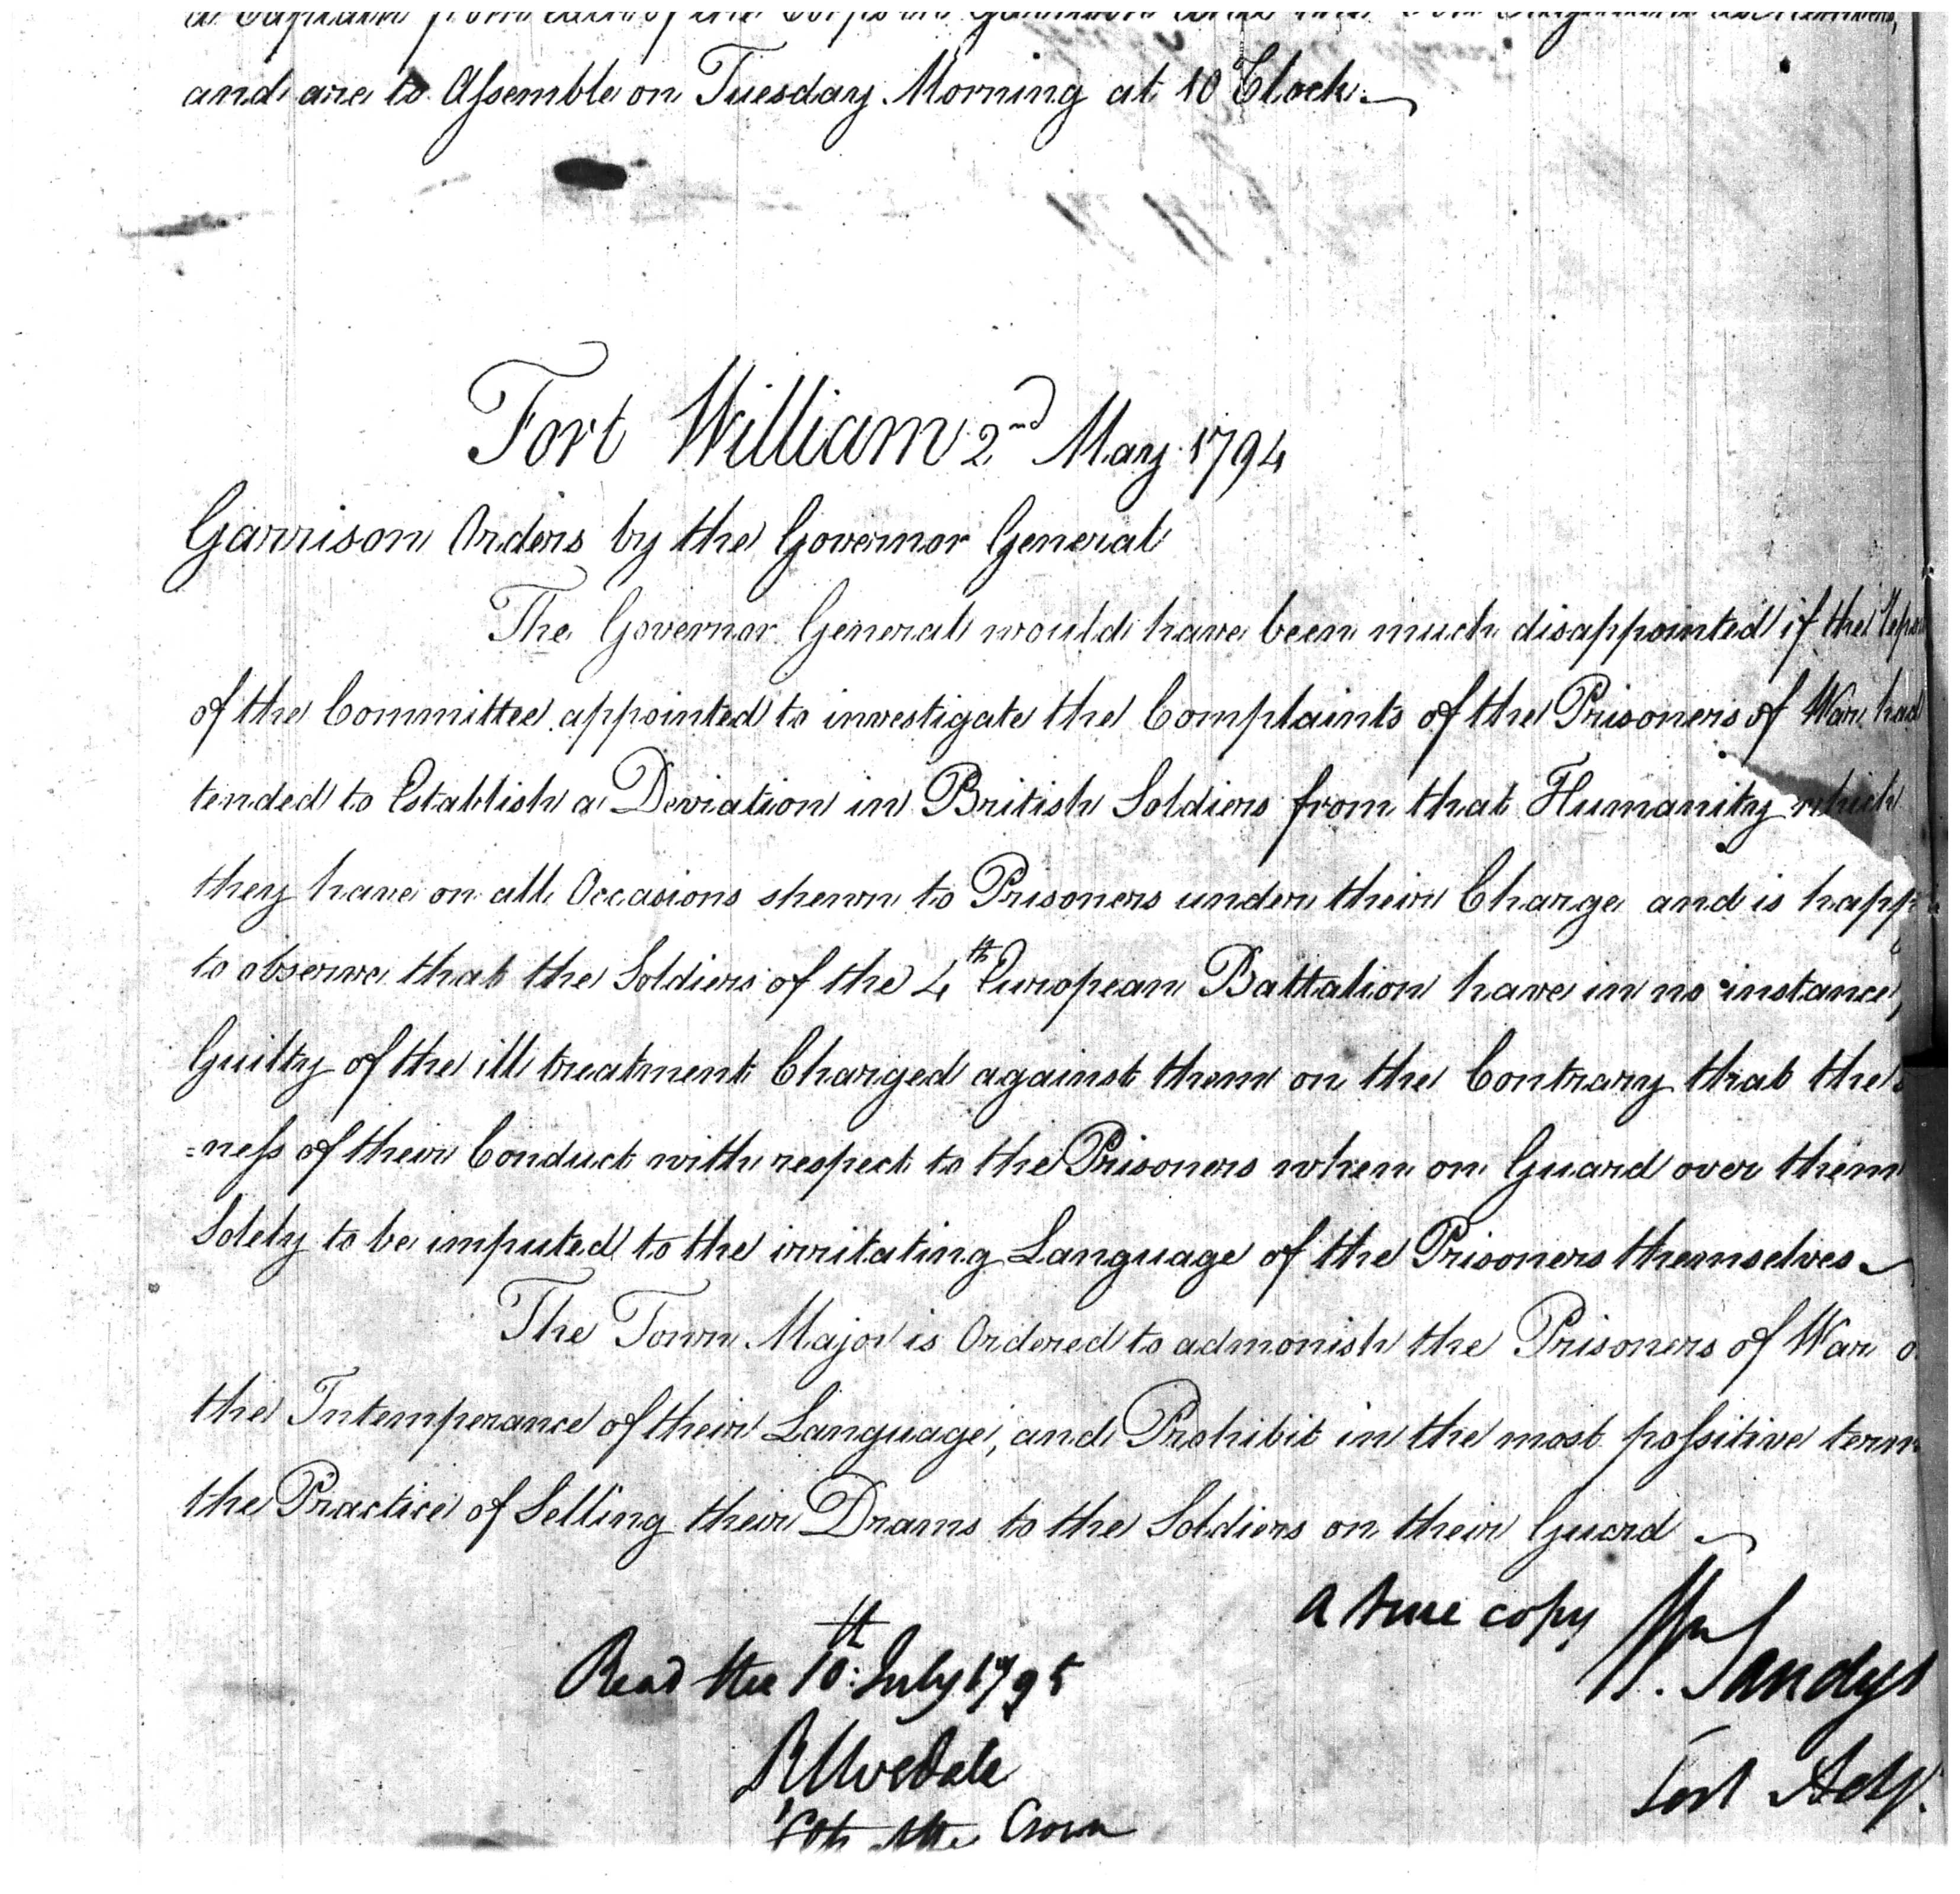 a Captain from each of the Corps in Garrison
and are to Assemble on Tuesday Morning at 10 Clock
Fort William 2nd May 1794
Garrison Orders by the Governor General
The Governor General would have been much disappointed if the
of the Committee appointed to investigate the Complaints of the Prisoners of War had
tended to Establish a Deviation in British Soldiers from that Humanity which
they have on all Occasions shewn to Prisoners under their Charge and is happ
to observe that the Soldiers of the 4th European Battalion have in no instance
Guilty of the ill treatment Charged against them on the Contrary that the
=ness of their Conduct with respect to the Prisoners when on Guard over them
Solely to be imputed to the irritating Language of the Prisoners themselves
The Town Major is Ordered to admonish the Prisoners of War
the Intemperance of their Language, and Prohibit in the most possitive term
the Practice of Selling their Drams to the Soldiers on their Guard
a true copy
Wm Sandys
Fort Adjt.
Read the 10th July 1795
R Uvedale
Clk the Crown